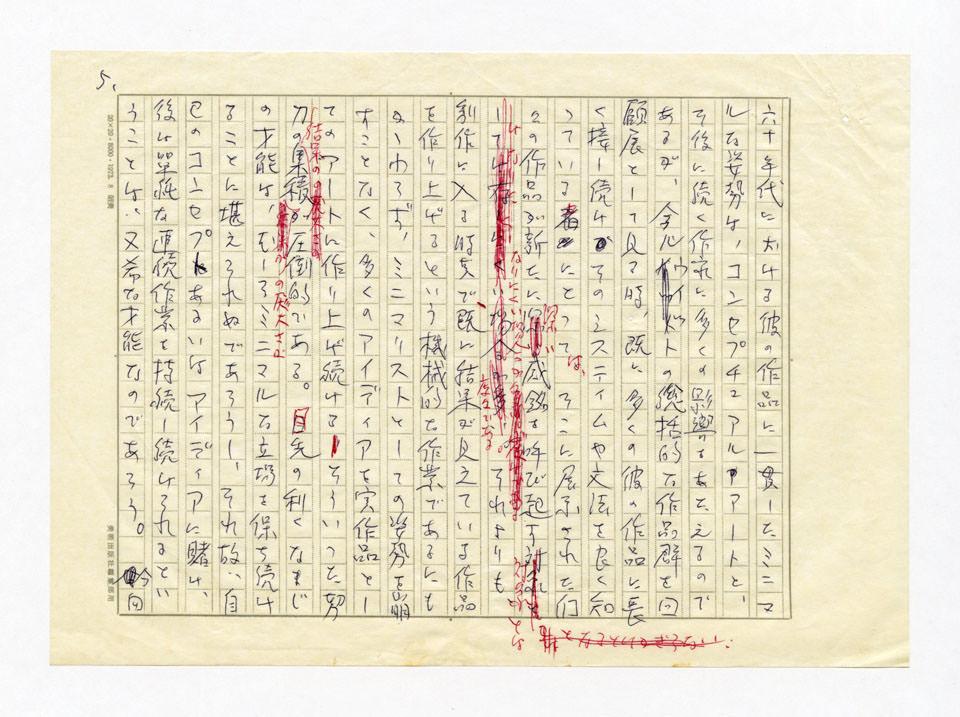 5.
六十年代に於ける彼の作品に一貫したミニマ
ルな姿勢は、コンセプチュアルアートと、
その後に続く作家に多くの影響をあたえるので
あるが、今ルウイットの総括的な作品群を回
顧展として見る時、既に多くの彼の作品に長
く接し続け そのシスティムや文法を良く知
っている者にとっては、そこに展示された
この作品が新たに深い感銘を呼び起す
それよりも
制作に入る時点で既に結果が見えている作品
を作り上げるという機械的な作業であるにも
かゝわらず、ミニマリストとしての姿勢を崩
すことなく、多くのアイディアを実作品とし
てのアートに作り上げ続ける そういった努
力の集積 結果の の厖大さが圧倒的である。目先の利くなまじ
の才能は、むしろミニマルな立場を保ち続け
ることに堪えられぬであろうし、それ故、自
己のコンセプトあるいはアイディアに賭け、
後は単純な連続作業を持続し続けられるとい
うことは、又希な才能なのであろう。
今回
20×20